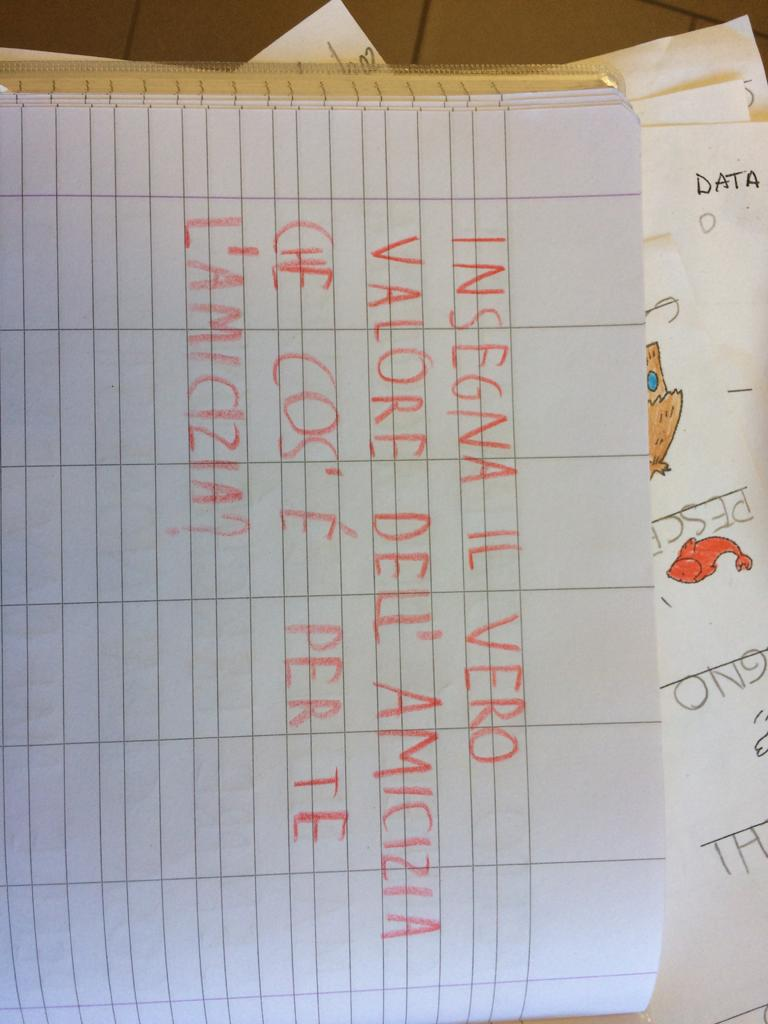 INSEGNA IL VERO
VALORE DELL'AMICIZIA
CHE COS'É PER TE
L'AMICIZIA?
DATA
PESCE
GNO